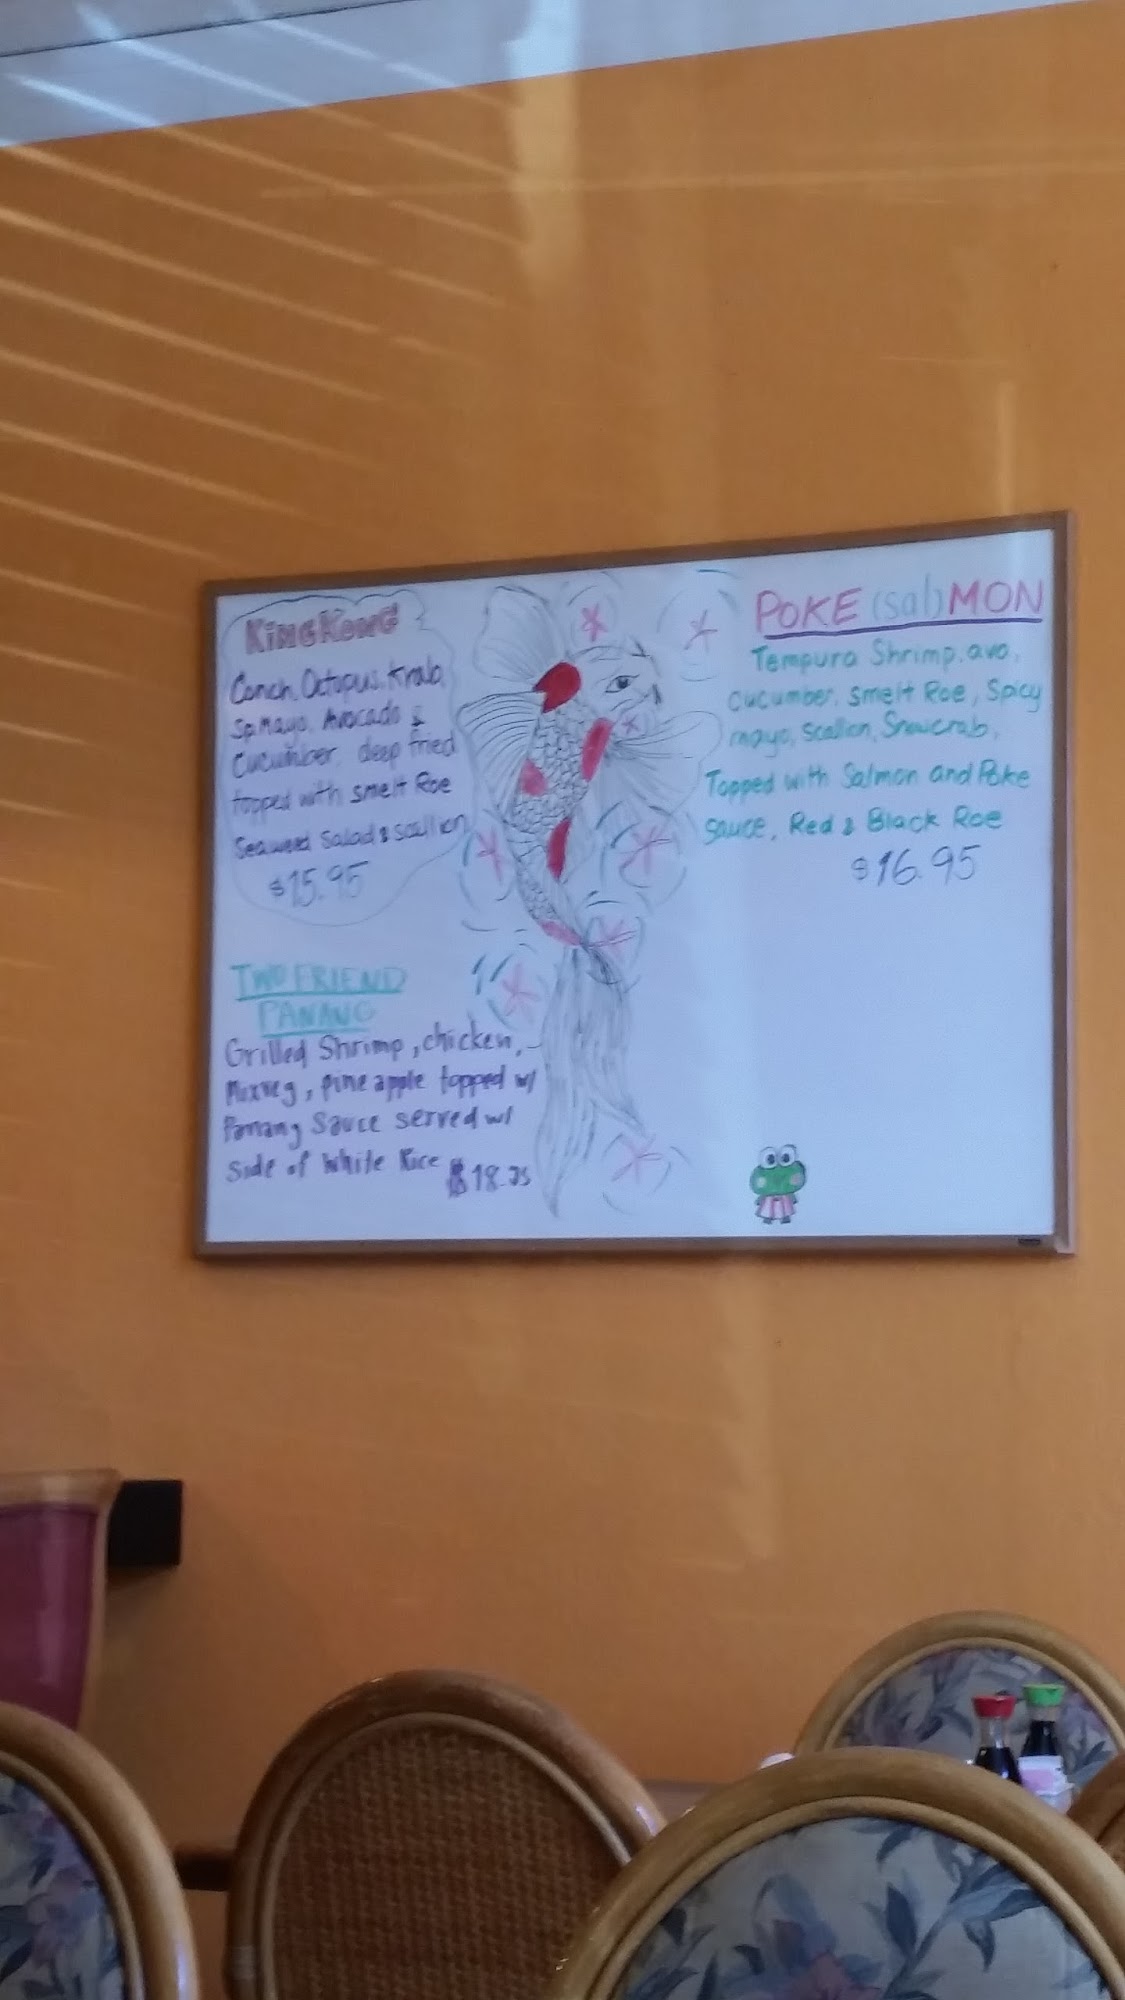 KING KONG
Conch, Octopus, Krab,
Sp.Mayo, Avocado &
Cucumber, deep fried
topped with smelt Roe
Seaweed Salad & scallion
$15.95
TWO FRIEND
PANANG
Grilled Shrimp, chicken,
Mixveg, pineapple topped w/
Panang Sauce served w/
side of White Rice $18.95
POKE (sal)MON
Tempura Shrimp, avo,
cucumber, smelt Roe, Spicy
mayo, Scallion, Snowcrab,
Topped with Salmon and Poke
sauce, Red & Black Roe
$16.95